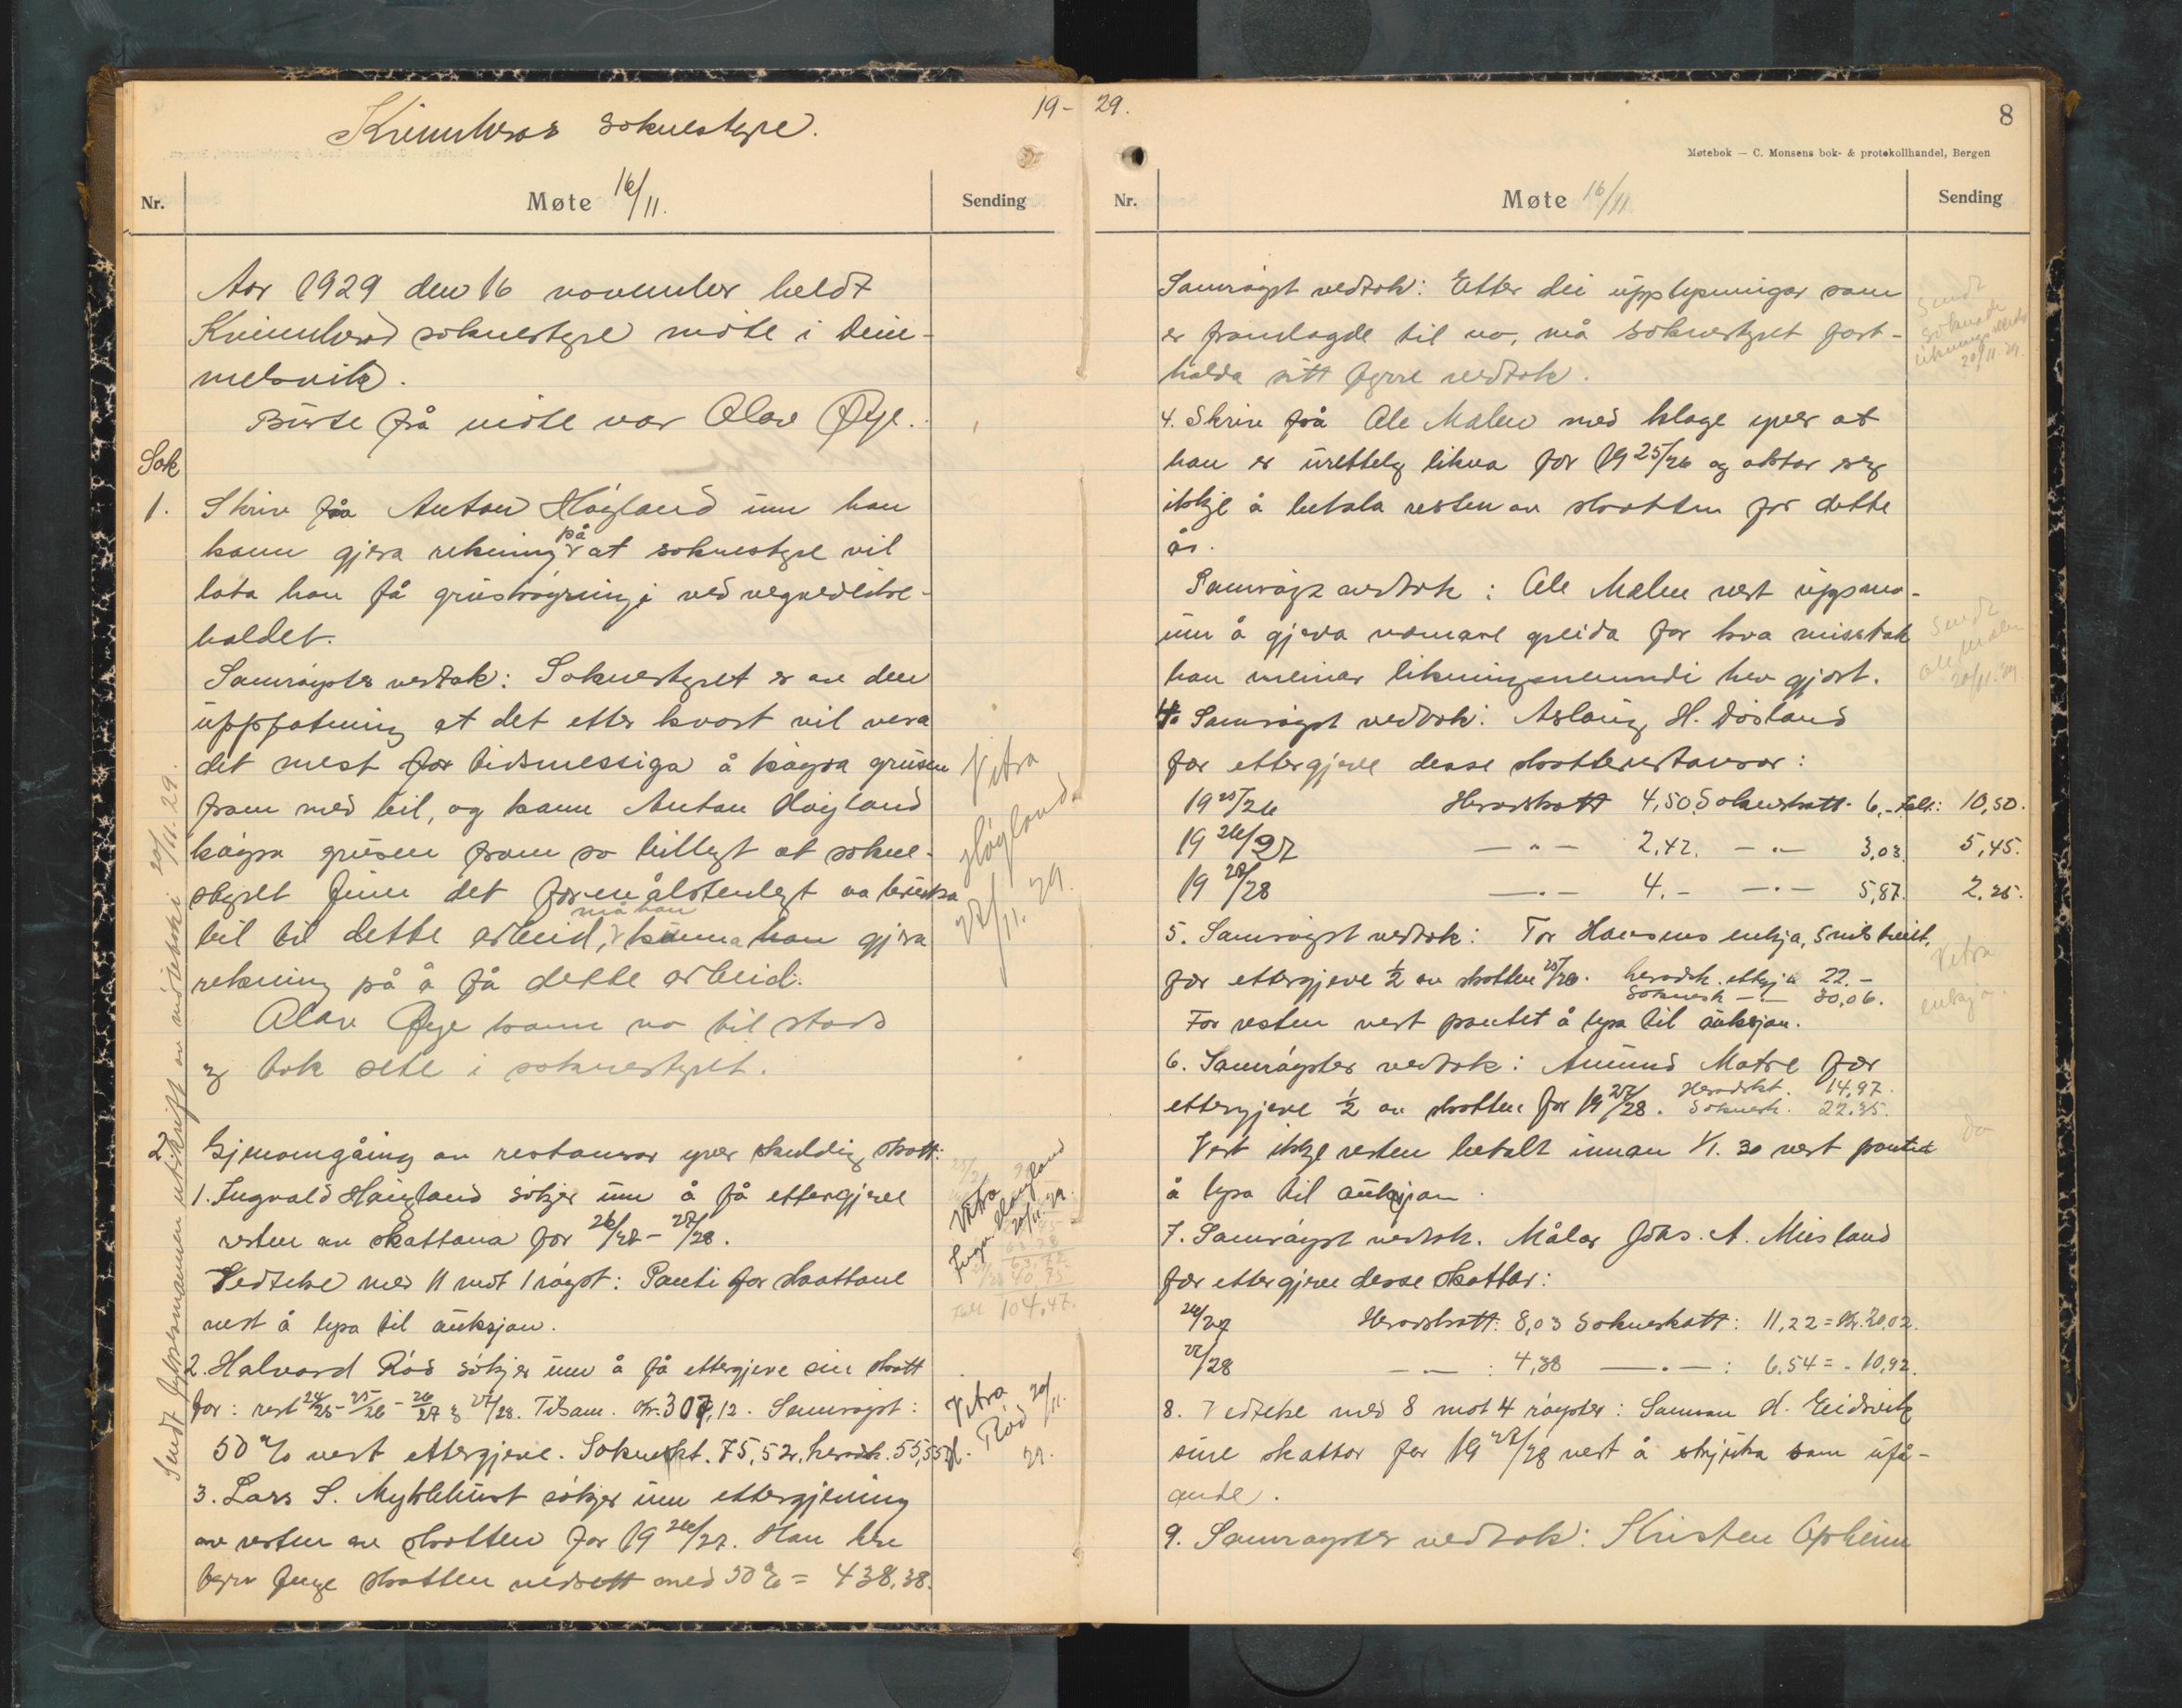 Kvinnherad soknestyre.
19-
Nr.
Møte 16/11.
Sending
Aar 1929 den 16 november heldt
Kvinnherad soknestyre møte i Dim-
melsvik.
Burte frå møte var Olav Øye.
Sak
1. Skriv frå Anton Høyland um han
kann gjera rekning på at soknestyre vil
lata han få gruskøyringi ved vegvedlike-
haldet.
Samrøystes vedtak: Soknestyret er av den
uppfatning at det etter kvart vil vera
det mest for tidsmessiga å køyra grusen
fram med bil, og kann Anton Høyland
køyra grusen fram so billegt at sokne-
styret finn det formålstenlegt aa bruka
bil til dette arbeid, må han kunna han gjera
rekning på å få dette arbeid.
Olav Øye kom no til stads
og tok sete i soknestyret.
Vitra
Høyland
22/11. 29.
2. Gjenomgåing av restansar yver skuldig skatt:
1. Ingvald Høyland søkjer um å få ettergjeve
resten av skattana for 26/27 - 27/28.
Vedteke med 11 mot 1 røyst: Panti for skattane
vert å lysa til auksjon.
Vitra
Ingv. Høyland
20/11. 29.
104,47.
2. Halvard Rød søkjer um å få ettergjeve sin skatt
for: rest 24/25 - 25/26 - 26/27 og 27/28. Tilsam. kr. 307,12. Samrøyst:
50 % vert ettergjeve. Sokneskt. 75,52, heradsk. 55,55
Vitra
Rød 20/11.
29.
3. Lars S. Myklebust søkjer um ettergjeving
av resten av skatten for 19 26/27. Han hev
fyrr fenge skatten nedsett med 50 % = 438,38.
Sendt formannen utskrift av møteboki 20/11. 29.
29.
8
Møtebok — C. Monsens bok- & protokollhandel, Bergen
Nr.
Møte 16/11
Sending
Samrøyst vedtok: Etter dei upplysningar som
er framlagde til no, må soknestyret fast-
halda sitt fyrre vedtok.
Sendt
20/11. 29.
4. Skriv frå Ole Malen med klage yver at
han er urettelg likna for 19 25/26 og aktar seg
ikkje å betala resten av skatten for dette
år.
Samrøyst vedtok: Ole Malen vert uppmo-
um å gjeva nomare greida for kva misstak
han meinar likningsnemndi hev gjort.
Sendt
Ole Malen
20/11. 29.
4. Samrøyst vedtok: Aslaug H. Døsland
fær ettergjeve desse skatterestansar:
19 25/26 Heradskatt 4,50. Soknskatt - 6,- Tils.: 10,50.
19 26/27 — " — 2,42. — " — 3,03. 5,45.
19 28/28 — " — 4.- — " — 5,87. 2,25.
5. Samrøyst vedtok: Tor Hansens enkja,
fær ettergjeve 1/2 av skatten 25/26. heradsk. 22.-
Soknesk — " — 30,06.
For resten vert pantet å lysa til auksjon.
Vitra
enkja.
6. Samrøystes vedtok: Amund Matre fær
ettergjeve 1/2 av skatten for 19 27/28. Heradskt. 14,97.
Soknesk. 22,35.
Vert ikkje resten betalt innan 1/1. 30 vert pantet
å lysa til auksjon.
do
7. Samrøyst vedtok. Målar Johs. A. Miisland
fær ettergjeve desse skattar:
26/27 Heradskatt: 8,03 Sokneskatt: 11,22 = Kr. 20,02.
27/28 — — : 4,38 — " — : 6.54 = - 10,92.
8. Vedteke med 8 mot 4 røyster: Samson H. Eidsvik
sine skattar for 19 27/28 vert å stryka som ufå-
ande.
9. Samrøystes vedtok: Kristen Opheim